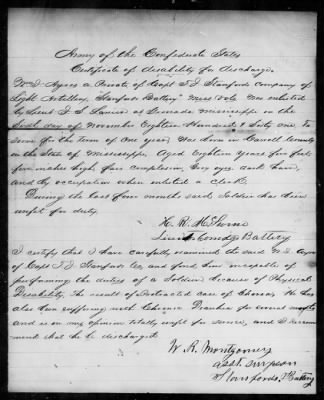 Army of the Confederate States
Certificate of disability for discharge.
W. J. Ayres a Private of Capt T J Stanfords Company of
Light Artillery, Stanfords Battery Miss Vols was enlisted
by Lieut J. S. Lanier at Grenada Mississippi on the
day of November Eighteen Hundred & Sixty one to
serve for the term of One year, was born in Carroll County
in the State of Mississippi, Aged Eighteen years five feet
five inches high, fair complexion, Grey eyes, dark hair,
and by occupation when enlisted a Clerk.
During the last four months said Soldier has been
unfit for duty
H. R. McSherrie
Lieut Comdg Battery
I certify that I have carefully examined the said W J Ayres
of Capt T J Stanfords Co and find him incapable of
performing the duties of a Soldier because of Physical
Disability. The result of Protracted case of He has
also been suffering with Chronic for several months
and is in my opinion totally unfit for service, and I recom
mend that he be discharged
W. R. Montgomery
asst. surgeon
Stanfords Battery